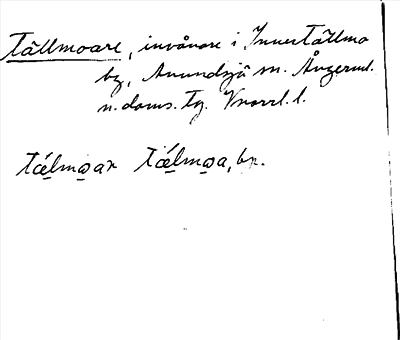 Tällmoare, invånare i Inner Tällmo
by, Anundsjö sn. Ångerml.
n. doms. tg. Vnorrl. l.
Tǽlmoar Tǽlmoa, bn.